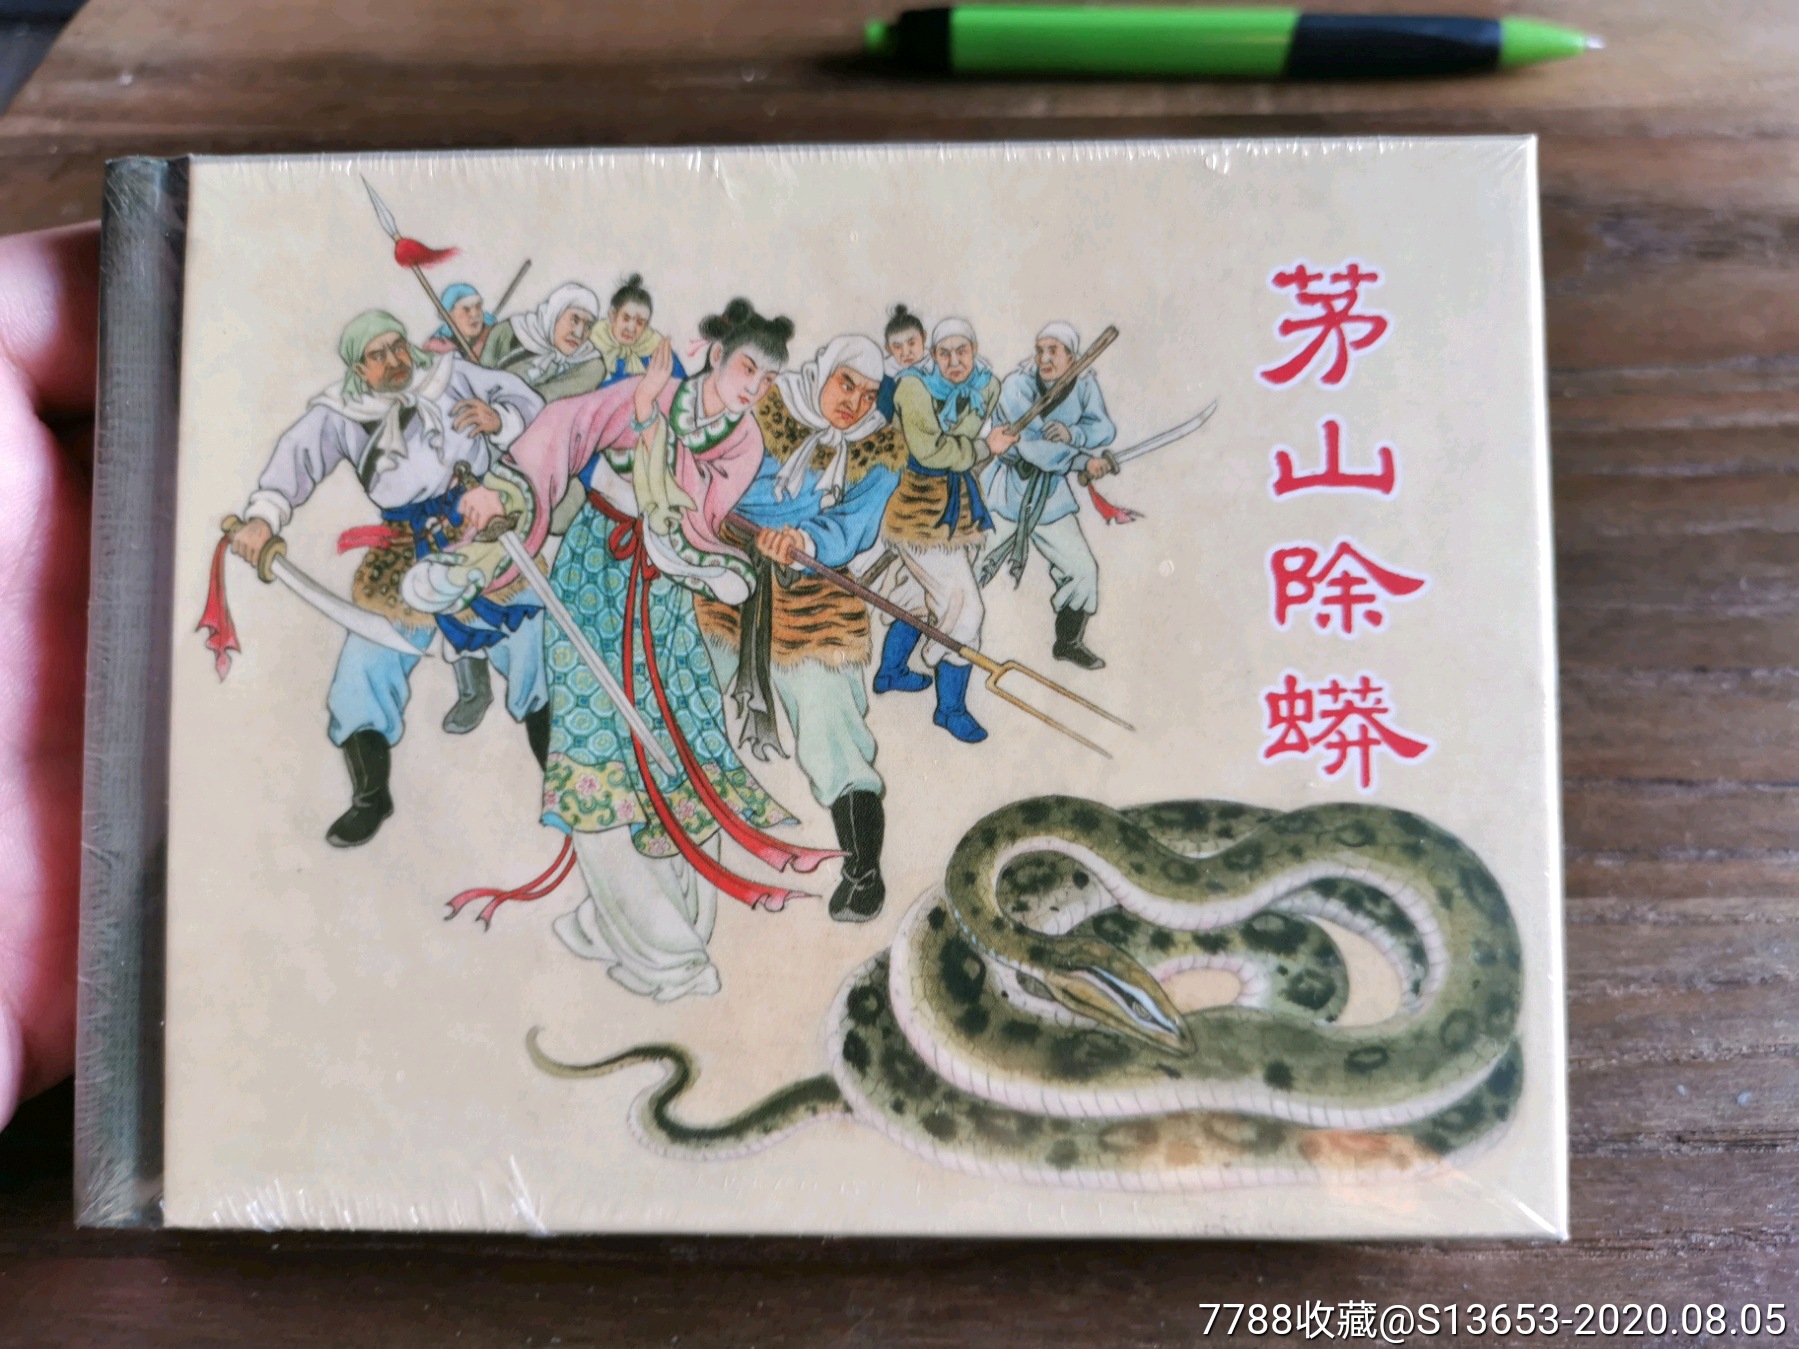 茅山除蟒
7788收藏@S13653-2020.08.05